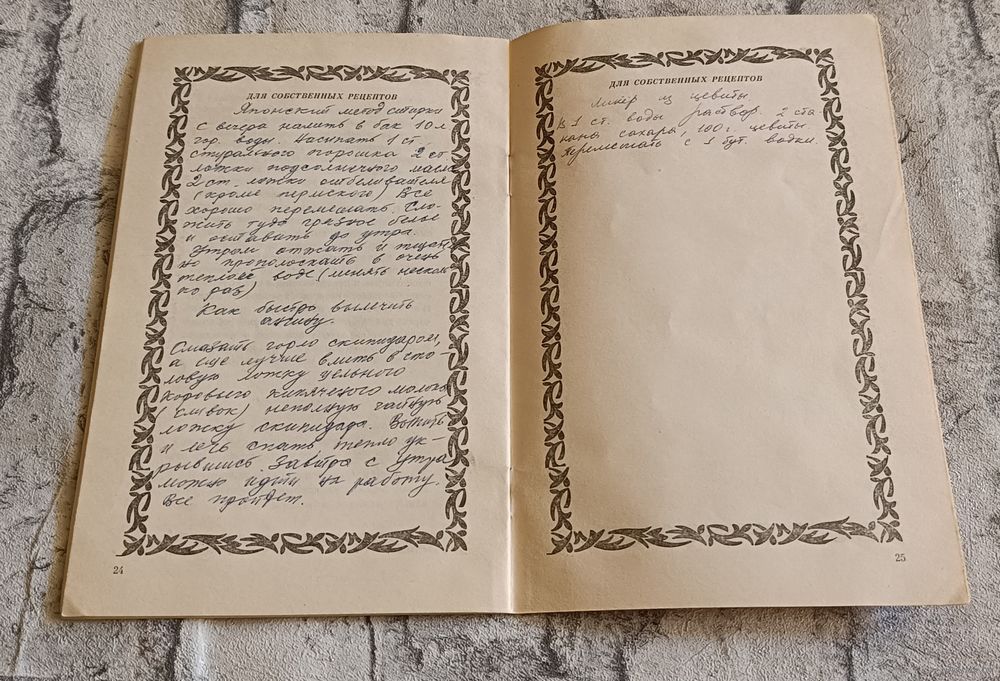 ДЛЯ СОБСТВЕННЫХ РЕЦЕПТОВ
Японский метод стирки
С вечера налить в бак 10 л
гор. воды. Насыпать 1 ст
стирального порошка 2 ст
ложки подсолнечного масла
2 ст. ложки отбеливателя
(кроме пермского) Все
хорошо перемешать. Сло-
жить туда грязное белье
и оставить до утра.
Утром отжать и тщат
но прополоскать в очень
теплой воде (менять несколь
ко раз)
Как быстро вылечить
ангину.
Смазать горло скипидаром,
а еще лучше влить в сто-
ловую ложку цельного
коровьего кипяченого молока
(сливок) неполную чайную
ложку скипидара. Выпить
и лечь спать тепло ук-
рывшись. Завтра с утра
можно идти на работу.
Все пройдет.
24
ДЛЯ СОБСТВЕННЫХ РЕЦЕПТОВ
Ликер из цевиты
В 1 ст. воды раствор. 2 ста
кана сахара, 100 г. цевиты.
Перемешать с 1 бут. водки.
25